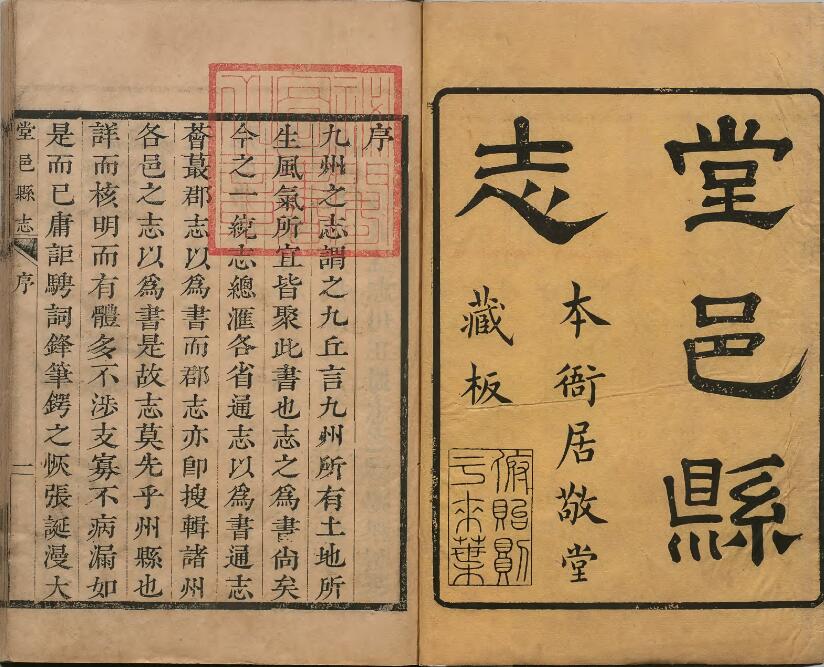 堂邑縣
志
本衙居敬堂
藏板
序
九州之志謂之九丘言九州所有土地所
生風氣所宜皆聚此書也志之為書尚矣
今之一統志總滙各省通志以為書通志
薈蕞郡志以為書而郡志亦卽搜輯諸州
各邑之志以為書是故志莫先乎州縣也
詳而核明而有體多不涉支寡不病漏如
是而已庸詎騁詞鋒筆鍔之恢張誕漫大
堂邑縣志 序 二